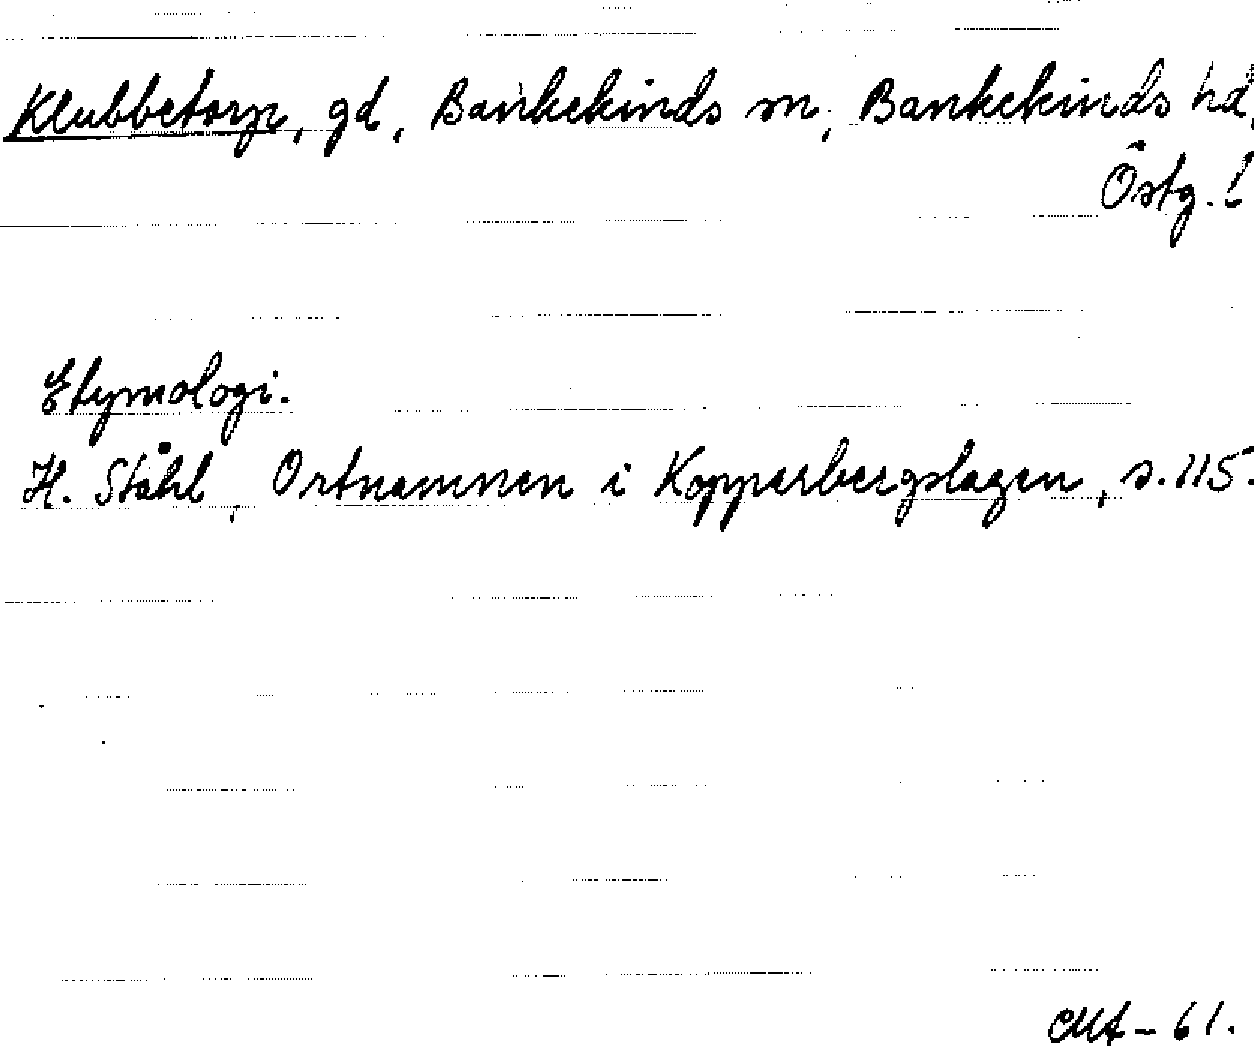 Klubbetorp, gd, Bankekinds sn, Bankekinds hd,
Östg. !
Etymologi.
H. Ståhl, Ortnamnen i Kopparbergslagen, s. 115.
-61.